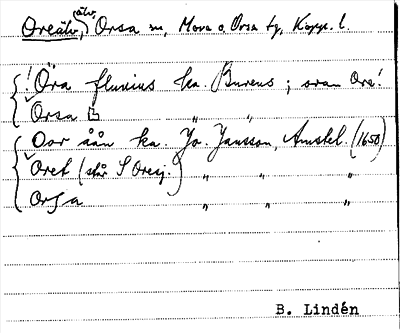 Oreälv, älv, Orsa sn, Mora o. Orsa tg, Kopp. l.
! Öra fluvius ka. Bureus; ovan Ore!
Orsa " "
Oor åån ka. Jo. Jansson, Amstel. (1650)
Oret (står S Oresj.) " " "
Orsa " " "
B. Lindén